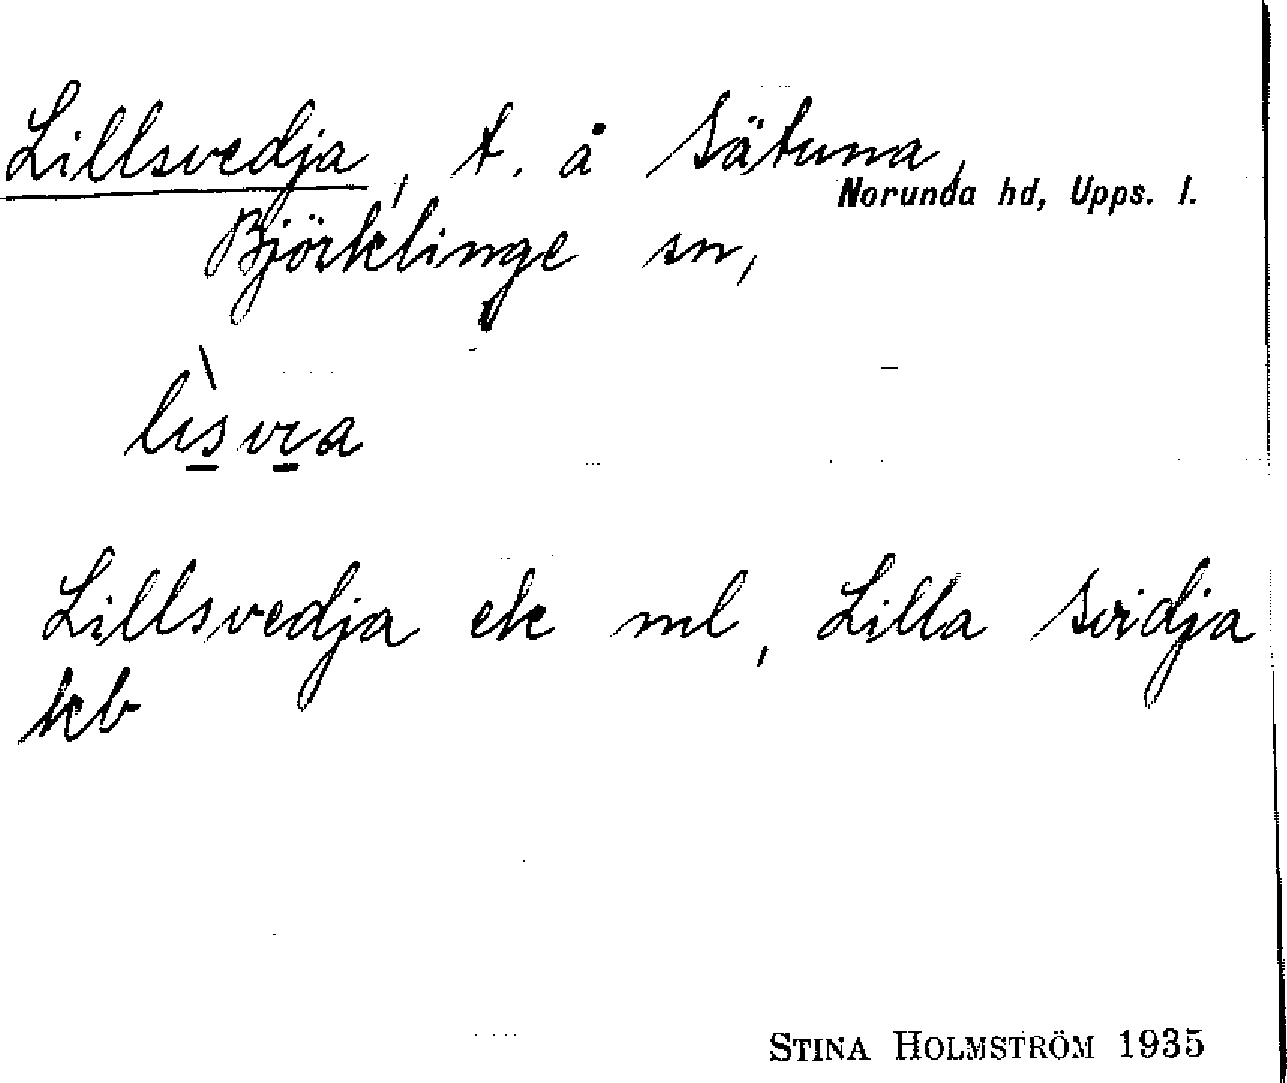 Lillsvedja, t. å Sätuna,
Norunda hd, Upps. l.
Björklinge sn,
lìsvıa
Lillsvedja ek ml, Lilla Svidja
kb
STINA HOLMSTRÖM 1935